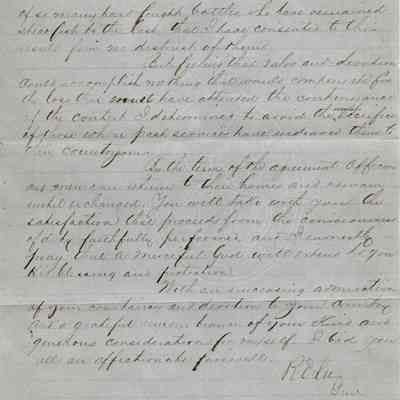 of so many hard fought battles who have remained
steadfast to the last that I have consented to this
result from no distrust of them.
But feeling that valor and devotion
could accomplish nothing that would compensate for
the loss that must have attended the continuance
of the contest I determined to avoid the useless sacrifice
of those whose past services have endeared them to
their countrymen.
By the terms of the agreement Officers
and men can return to their homes and remain
until exchanged. You will take with you the
satisfaction that proceeds from the consciousness
of duty faithfully performed and I earnestly
pray that a merciful God will extend to you
his blessing and protection.
With an unceasing admiration
of your constancy and devotion to your Country
and a grateful remembrance of your kind and
generous consideration for myself I bid you
all an affectionate farewell.
R E Lee
Genl